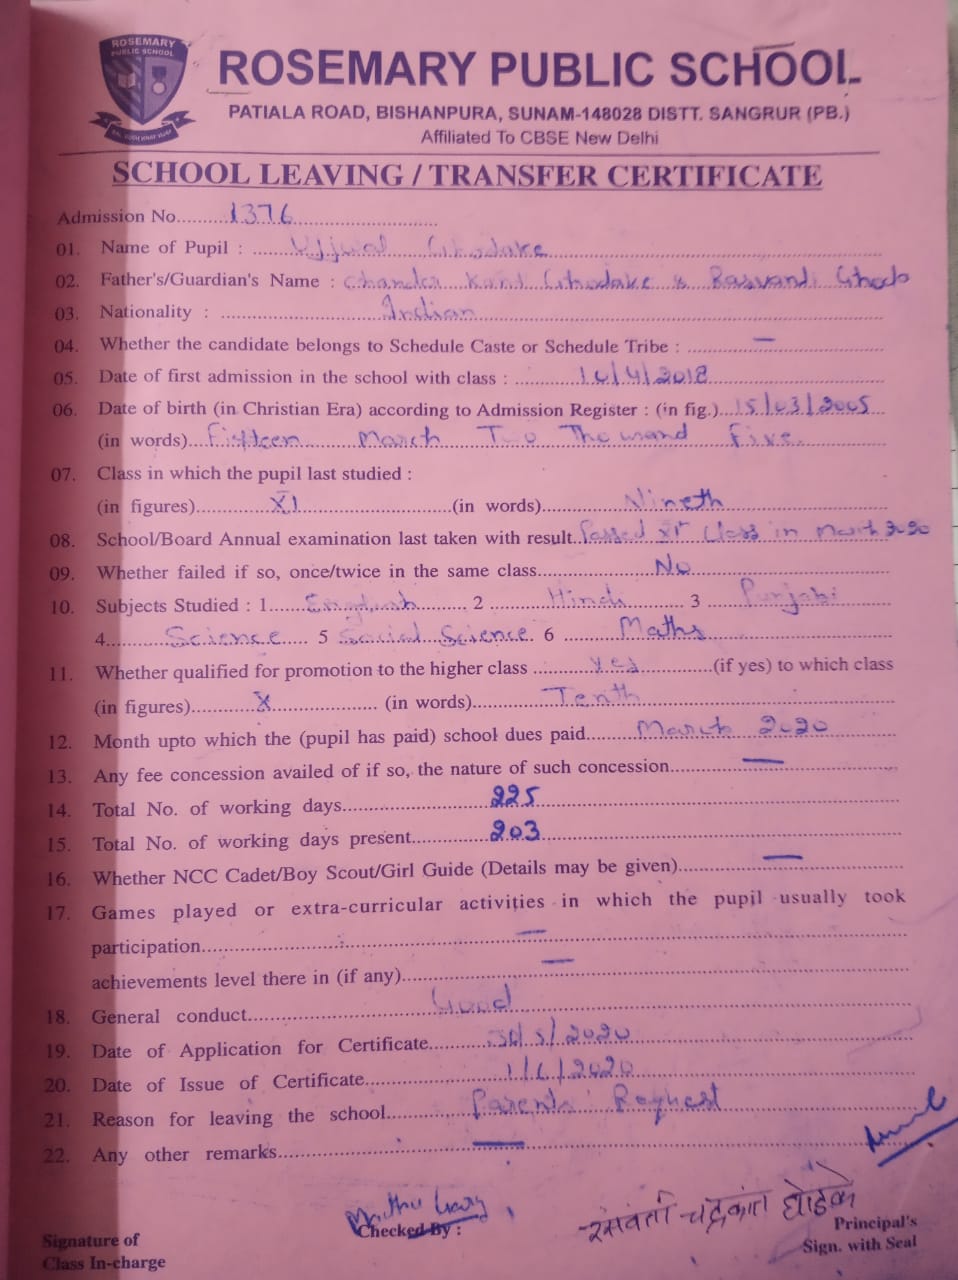 ROSEMARY
PUBLIC SCHOOL
ROSEMARY PUBLIC SCHOOL
PATIALA ROAD, BISHANPURA, SUNAM-148028 DISTT. SANGRUR (PB.)
Affiliated To CBSE New Delhi
SCHOOL LEAVING / TRANSFER CERTIFICATE
Admission No.........1376
01. Name of Pupil : Ujjwal Ghodake
02. Father's/Guardian's Name : Chander Kant Ghodake & Rasvanti
03. Nationality : Indian
04. Whether the candidate belongs to Schedule Caste or Schedule Tribe : —
05. Date of first admission in the school with class : /4/2018
06. Date of birth (in Christian Era) according to Admission Register : (in fig.) 15/03/2005
(in words) Fifteen March Two Thousand Five.
07. Class in which the pupil last studied :
(in figures) (in words) Nineth
08. School/Board Annual examination last taken with result. Passed Class in March 2020
09. Whether failed if so, once/twice in the same class No
10. Subjects Studied : 1 English 2 Hindi 3 Punjabi
4 Science 5 Social Science 6 Maths
11. Whether qualified for promotion to the higher class yes (if yes) to which class
(in figures) X (in words) Tenth
12. Month upto which the (pupil has paid) school dues paid March 2020
13. Any fee concession availed of if so, the nature of such concession —
14. Total No. of working days 225
15. Total No. of working days present 203
16. Whether NCC Cadet/Boy Scout/Girl Guide (Details may be given) —
17. Games played or extra-curricular activities in which the pupil usually took
participation —
achievements level there in (if any) —
18. General conduct Good
19. Date of Application for Certificate 30/5/2020
20. Date of Issue of Certificate 1/6/2020
21. Reason for leaving the school Parents' Request
22. Any other remarks —
रसवंती चंद्रकांत घोडके
Checked By :
Principal's
Signature of
Sign. with Seal
Class In-charge